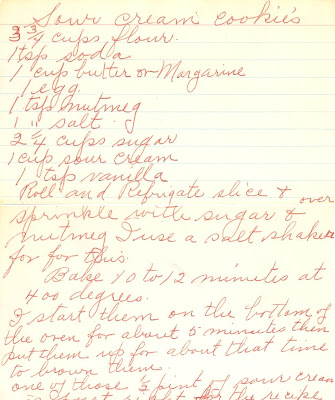 Sour cream cookie's
3 3/4 cups flour.
1 tsp soda
1 cup butter or Margarine
1 egg.
1 tsp nutmeg
1 " salt.
2 1/4 cups sugar
1 cup sour cream
1 tsp vanilla
Roll and Refrigate slice + over
sprinkle with sugar &
nutmeg I use a salt shaker
for for this.
Bake 10 to 12 minutes at
400 degrees.
I start them on the bottom of
the oven for about 5 minutes then
put them up for about that time
to brown them.
one of those 1/2 pint of sour cream
is just right for the recipe